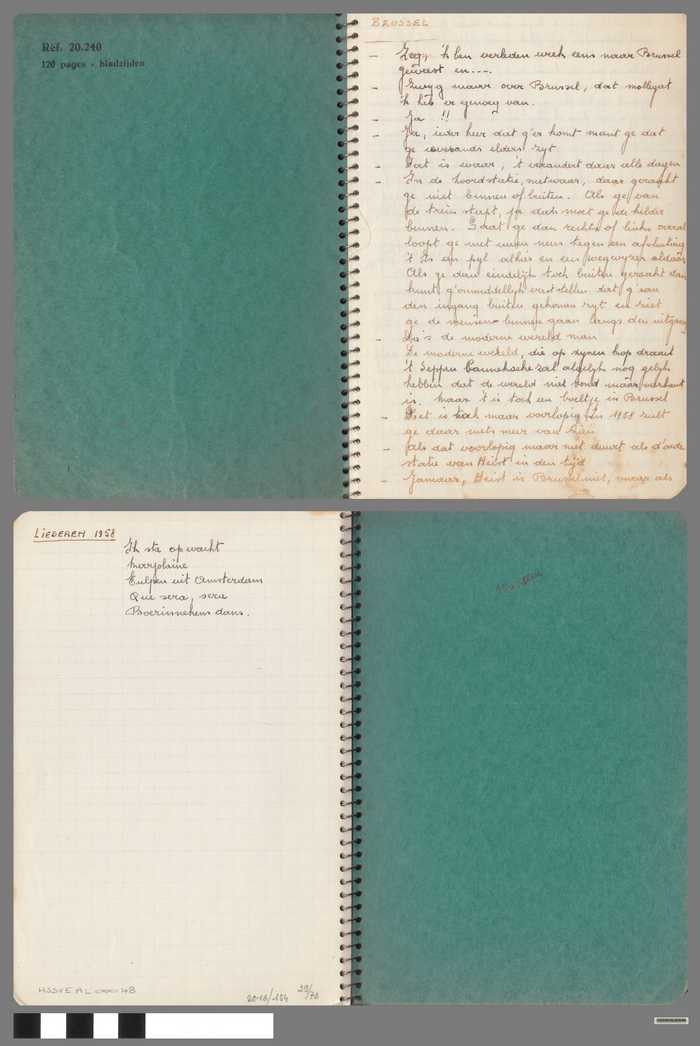 Réf. 20.240
120 pages - bladzijden
BRUSSEL
- Zeg, 'k ben verleden week eens naar Brussel
geweest en....
- Zwyg maar over Brussel, dat
'k heb er genoeg van.
- Ja !!
- Ja, ieder keer dat g'er komt ge dat
ge elders zyt
- Dat is waar, 't verandert daar alle dagen
- In de noordstatie, netwaar, daar geraakt
ge niet binnen of buiten. Als ge van
de trein stapt, ja dan moet ge de kelder
binnen. Gaat ge dan rechts of links overal
loopt ge met uwen neus tegen een afsluiting
't Is een pyl alhier en een wegwyzer aldaar
Als ge dan eindelijk toch buiten geraakt dan
kunt g'onmiddellijk vaststellen dat g'van
den ingang buiten gekomen zyt en ziet
ge de mensen binnen gaan langs den uitgang
- Da's de moderne wereld man
- De moderne wereld, die op zynen kop draait
't Seppen zal algelyk nog gelyk
hebben dat de wereld niet rond maar vierkant
is. Maar 't is toch een boeltje in Brussel
- Het is toch maar voorlopig. In 1958 zult
ge daar niets meer van zien
- Als dat voorlopig maar niet duurt als d'oude
statie van Heist in den tyd
- Jamaar, Heist is Brussel niet, maar als
LIEDEREN 1958
Ik sta op wacht
Marjolaine
Tulpen uit Amsterdam
Que sera, sera
Boerinnekens dans.
HSSVE AL 000048
2018/154
29/70